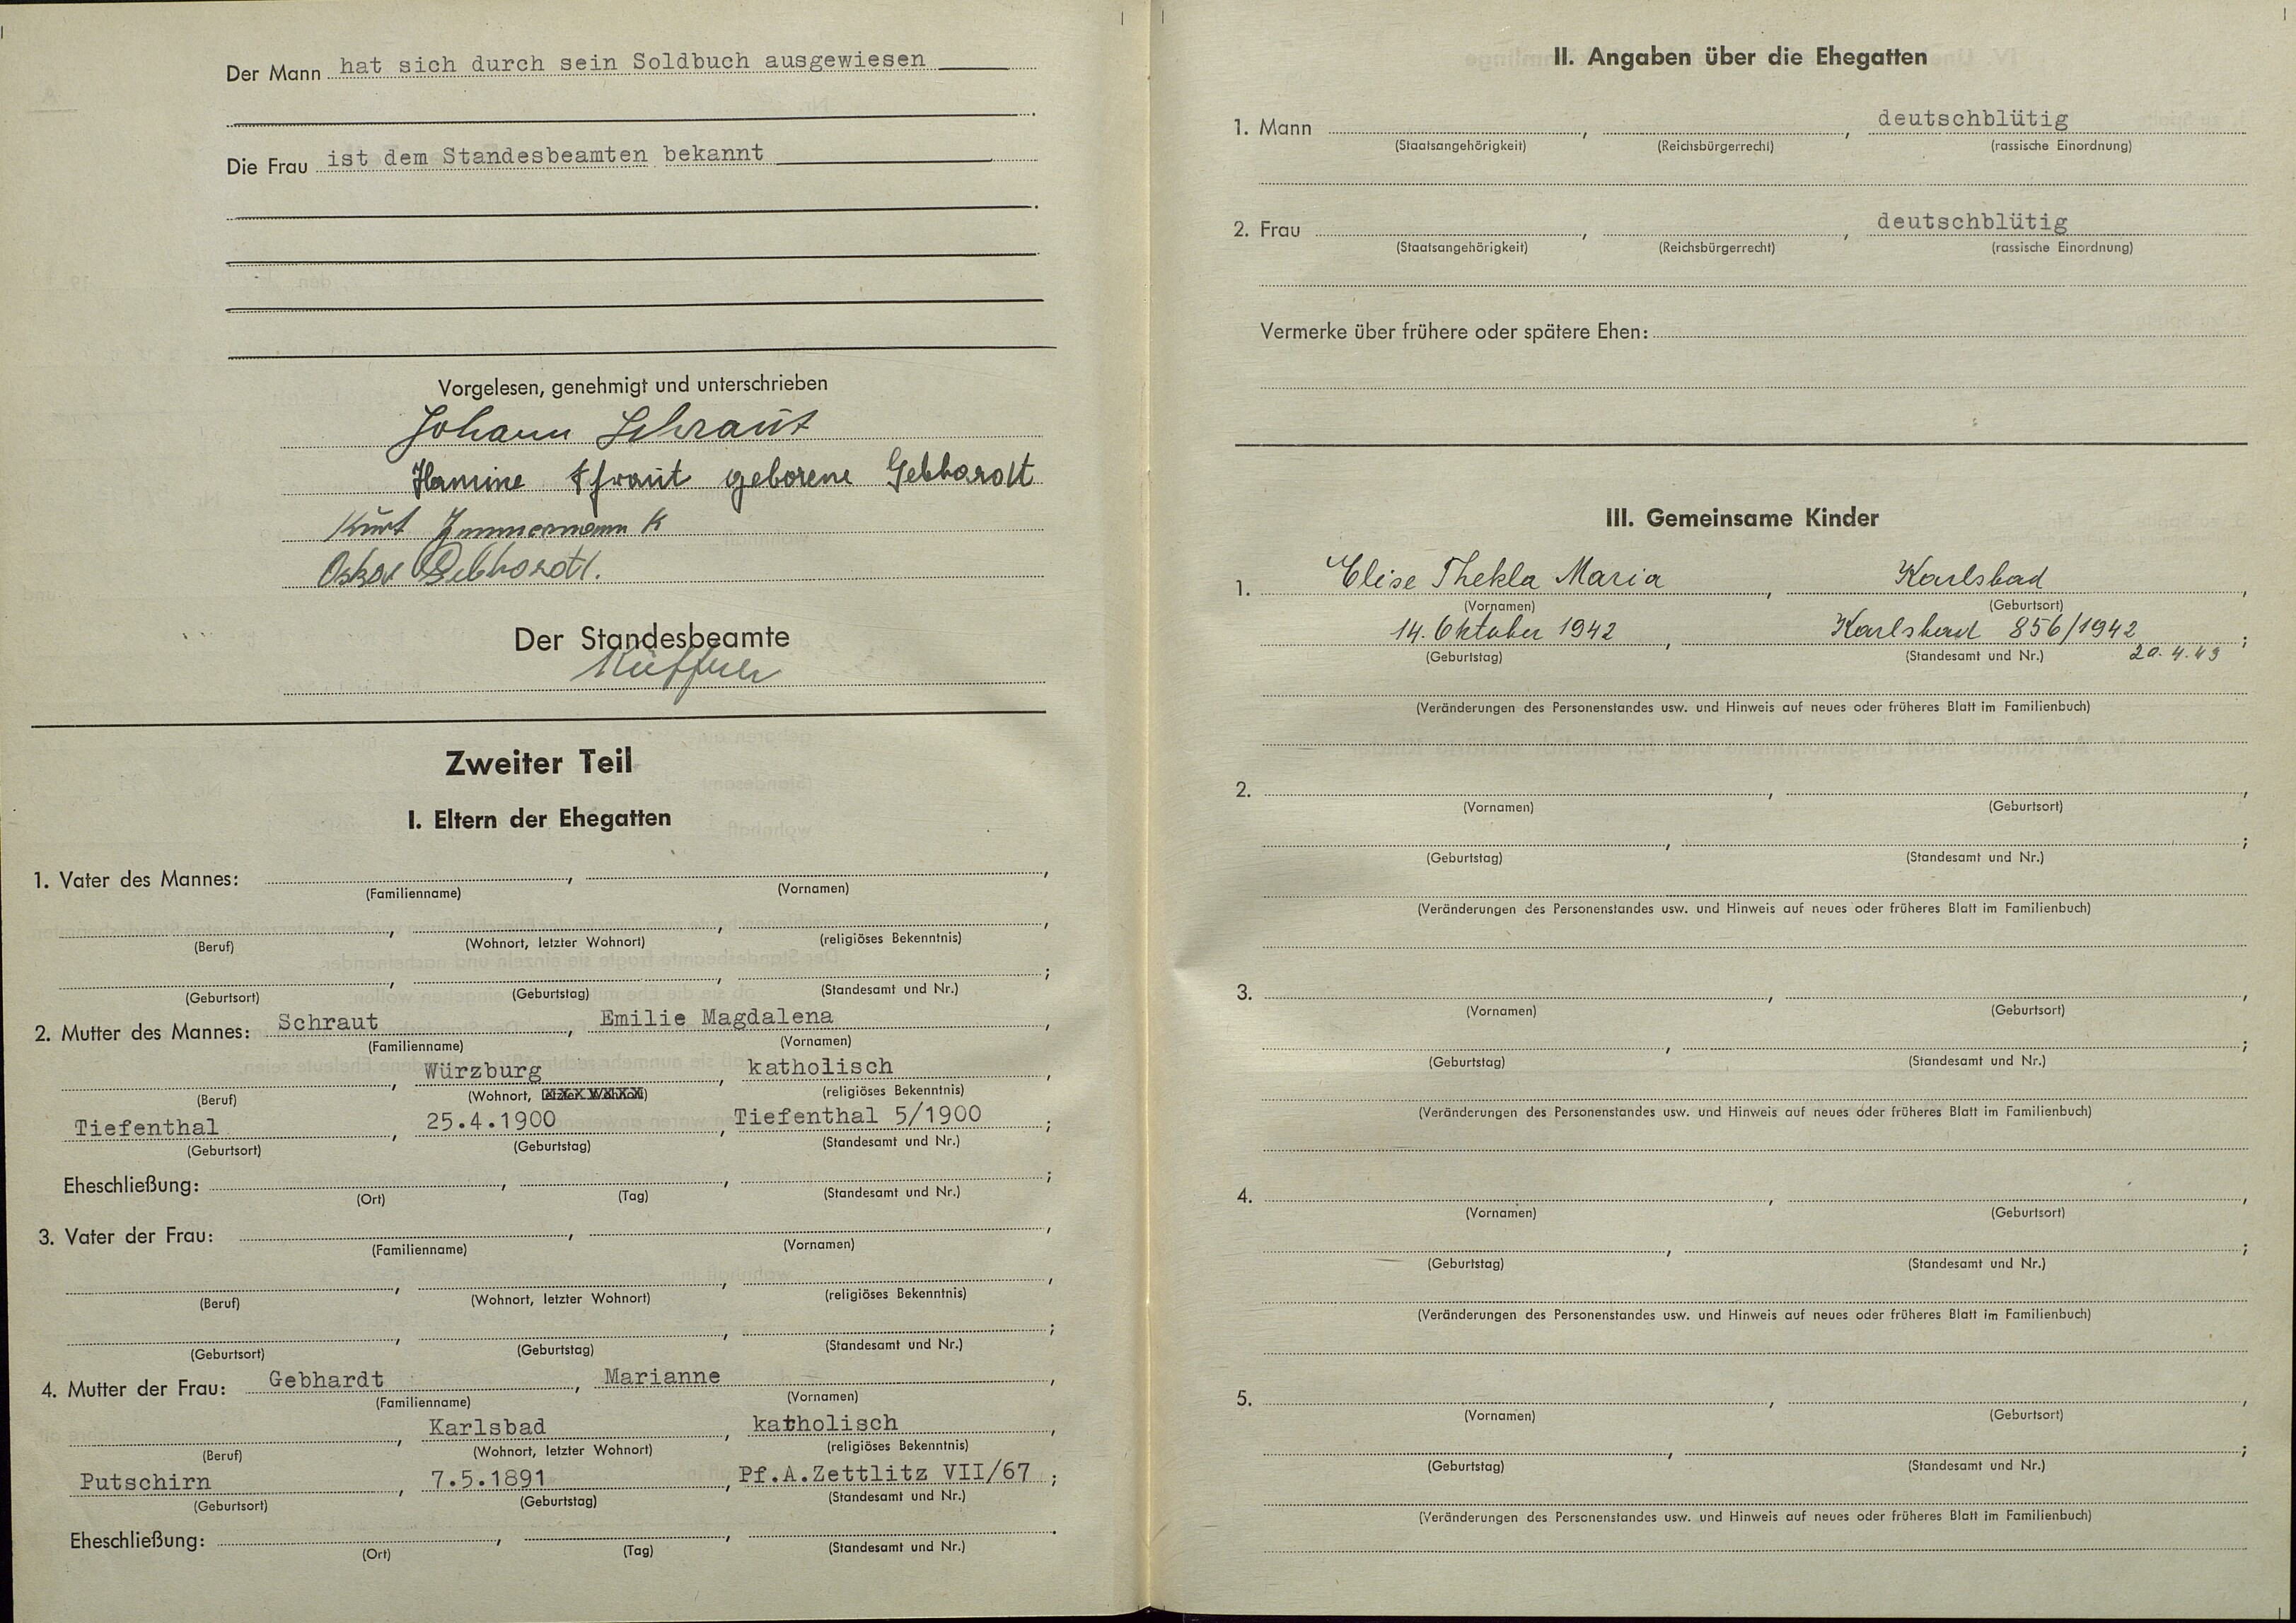 Der Mann hat sich durch sein Soldbuch ausgewiesen
Die Frau ist dem Standesbeamten bekannt
Vorgelesen, genehmigt und unterschrieben
Johann Schraut
Schraut geborene Gebhardt
Kurt Zimmermann K
Oskar Gebhardt.
Der Standesbeamte
Küffner
Zweiter Teil
I. Eltern der Ehegatten
1. Vater des Mannes: , ,
(Familienname) (Vornamen)
(Beruf) (Wohnort, letzter Wohnort) (religiöses Bekenntnis)
(Geburtsort) (Geburtstag) (Standesamt und Nr.)
2. Mutter des Mannes: Schraut , Emilie Magdalena ,
(Familienname) (Vornamen)
, Würzburg , katholisch ,
(Beruf) (Wohnort, letzter Wohnort) (religiöses Bekenntnis)
Tiefenthal , 25.4.1900 , Tiefenthal 5/1900 ;
(Geburtsort) (Geburtstag) (Standesamt und Nr.)
Eheschließung: , , ;
(Ort) (Tag) (Standesamt und Nr.)
3. Vater der Frau: , ,
(Familienname) (Vornamen)
(Beruf) (Wohnort, letzter Wohnort) (religiöses Bekenntnis)
(Geburtsort) (Geburtstag) (Standesamt und Nr.)
4. Mutter der Frau: Gebhardt , Marianne ,
(Familienname) (Vornamen)
, Karlsbad , katholisch ,
(Beruf) (Wohnort, letzter Wohnort) (religiöses Bekenntnis)
Putschirn , 7.5.1891 , Pf.A.Zettlitz VII/67 ;
(Geburtsort) (Geburtstag) (Standesamt und Nr.)
Eheschließung: , , .
(Ort) (Tag) (Standesamt und Nr.)
II. Angaben über die Ehegatten
1. Mann , , deutschblütig
(Staatsangehörigkeit) (Reichsbürgerrecht) (rassische Einordnung)
2. Frau , , deutschblütig
(Staatsangehörigkeit) (Reichsbürgerrecht) (rassische Einordnung)
Vermerke über frühere oder spätere Ehen:
III. Gemeinsame Kinder
1. Elise Thekla Maria , Karlsbad ,
(Vornamen) (Geburtsort)
14. Oktober 1942 , Karlsbad 856/1942 ;
(Geburtstag) (Standesamt und Nr.) 20.4.43
(Veränderungen des Personenstandes usw. und Hinweis auf neues oder früheres Blatt im Familienbuch)
2. , ,
(Vornamen) (Geburtsort)
(Geburtstag) (Standesamt und Nr.)
(Veränderungen des Personenstandes usw. und Hinweis auf neues oder früheres Blatt im Familienbuch)
3. , ,
(Vornamen) (Geburtsort)
(Geburtstag) (Standesamt und Nr.)
(Veränderungen des Personenstandes usw. und Hinweis auf neues oder früheres Blatt im Familienbuch)
4. , ,
(Vornamen) (Geburtsort)
(Geburtstag) (Standesamt und Nr.)
(Veränderungen des Personenstandes usw. und Hinweis auf neues oder früheres Blatt im Familienbuch)
5. , ,
(Vornamen) (Geburtsort)
(Geburtstag) (Standesamt und Nr.)
(Veränderungen des Personenstandes usw. und Hinweis auf neues oder früheres Blatt im Familienbuch)